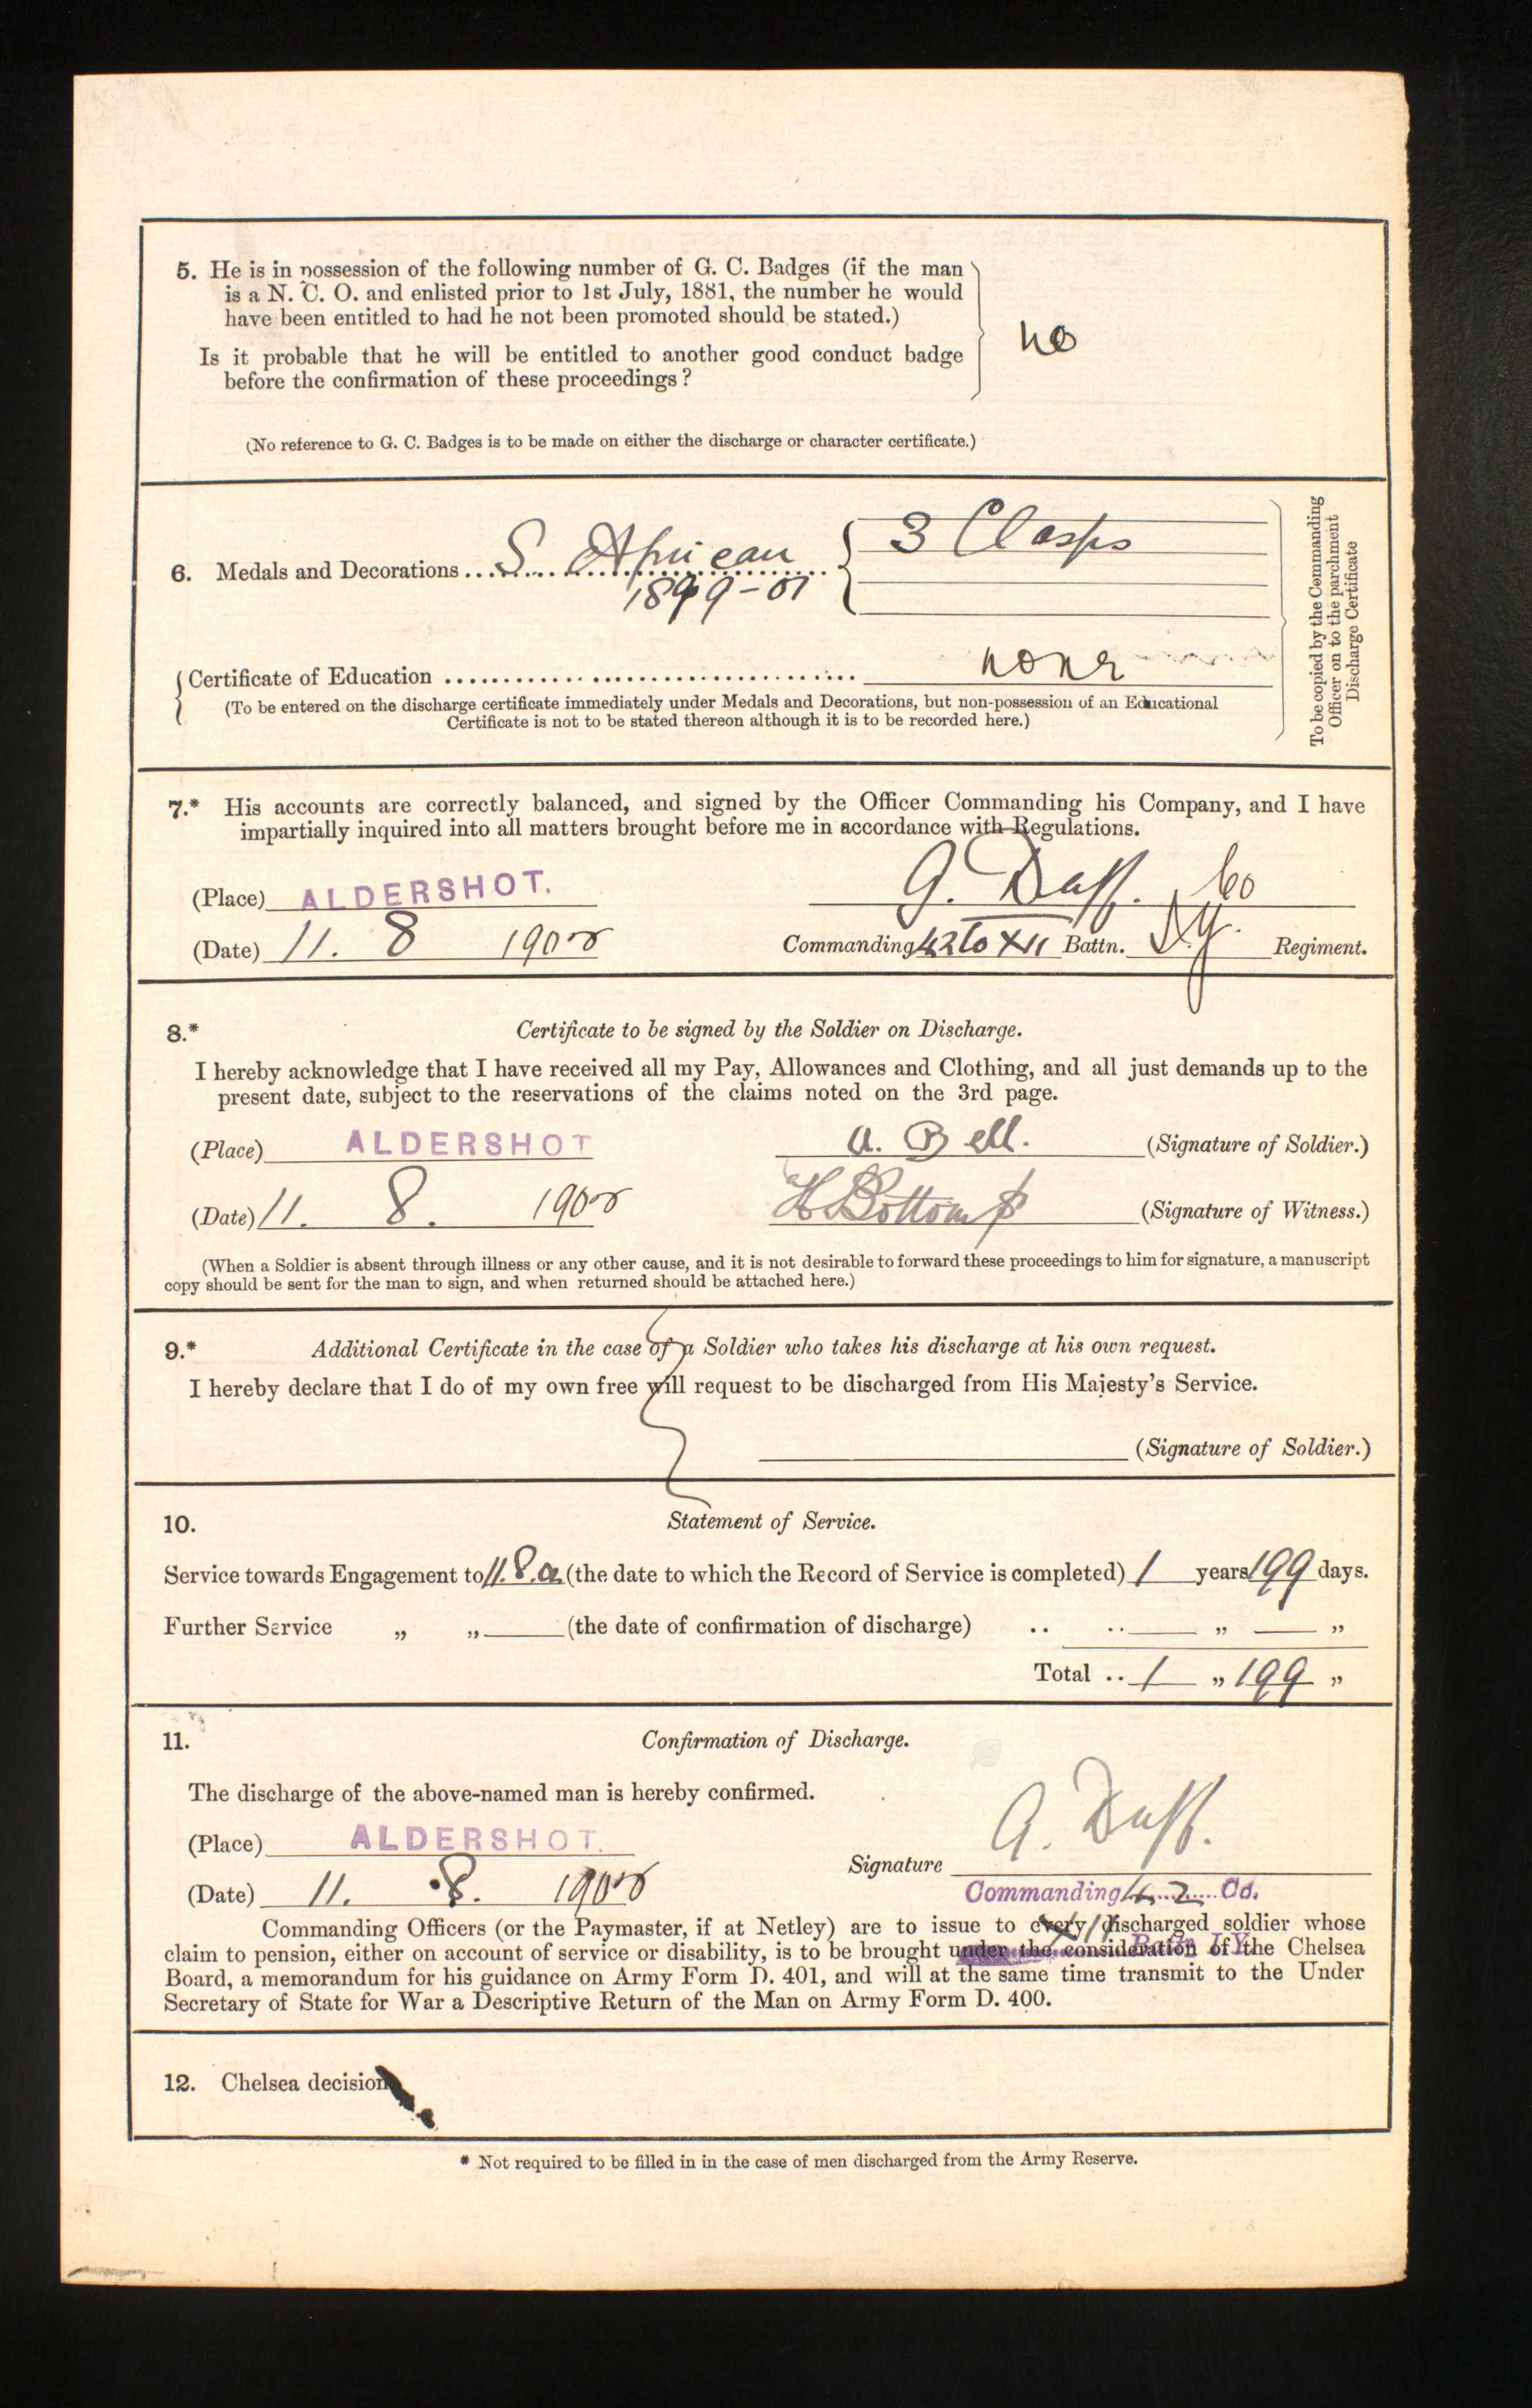 5. He is in possession of the following number of G. C. Badges (if the man
is a N. C. O. and enlisted prior to 1st July, 1881, the number he would
have been entitled to had he not been promoted should be stated.)
Is it probable that he will be entitled to another good conduct badge
before the confirmation of these proceedings?
no
(No reference to G. C. Badges is to be made on either the discharge or character certificate.)
6. Medals and Decorations S. African
1899-01
3 Clasps
Certificate of Education none
(To be entered on the discharge certificate immediately under Medals and Decorations, but non-possession of an Educational
Certificate is not to be stated thereon although it is to be recorded here.)
To be copied by the Commanding
Officer on to the parchment
Discharge Certificate
7.* His accounts are correctly balanced, and signed by the Officer Commanding his Company, and I have
impartially inquired into all matters brought before me in accordance with Regulations.
(Place) ALDERSHOT. G. Duff.
(Date) 11. 8 1902 Commanding 42 Co XII Battn. I.Y. Regiment.
8.* Certificate to be signed by the Soldier on Discharge.
I hereby acknowledge that I have received all my Pay, Allowances and Clothing, and all just demands up to the
present date, subject to the reservations of the claims noted on the 3rd page.
(Place) ALDERSHOT A. Bell. (Signature of Soldier.)
(Date) 11. 8. 1902 (Signature of Witness.)
(When a Soldier is absent through illness or any other cause, and it is not desirable to forward these proceedings to him for signature, a manuscript
copy should be sent for the man to sign, and when returned should be attached here.)
9.* Additional Certificate in the case of a Soldier who takes his discharge at his own request.
I hereby declare that I do of my own free will request to be discharged from His Majesty's Service.
(Signature of Soldier.)
10. Statement of Service.
Service towards Engagement to 11.8.02 (the date to which the Record of Service is completed) 1 years 199 days.
Further Service „ „ (the date of confirmation of discharge) .. .. „ „
Total .. 1 „ 199 „
11. Confirmation of Discharge.
The discharge of the above-named man is hereby confirmed.
(Place) ALDERSHOT. G. Duff.
Signature
(Date) 11. 8. 1902 Commanding 42 Co.
XII Battn I.Y.
Commanding Officers (or the Paymaster, if at Netley) are to issue to every discharged soldier whose
claim to pension, either on account of service or disability, is to be brought under the consideration of the Chelsea
Board, a memorandum for his guidance on Army Form D. 401, and will at the same time transmit to the Under
Secretary of State for War a Descriptive Return of the Man on Army Form D. 400.
12. Chelsea decision
* Not required to be filled in in the case of men discharged from the Army Reserve.